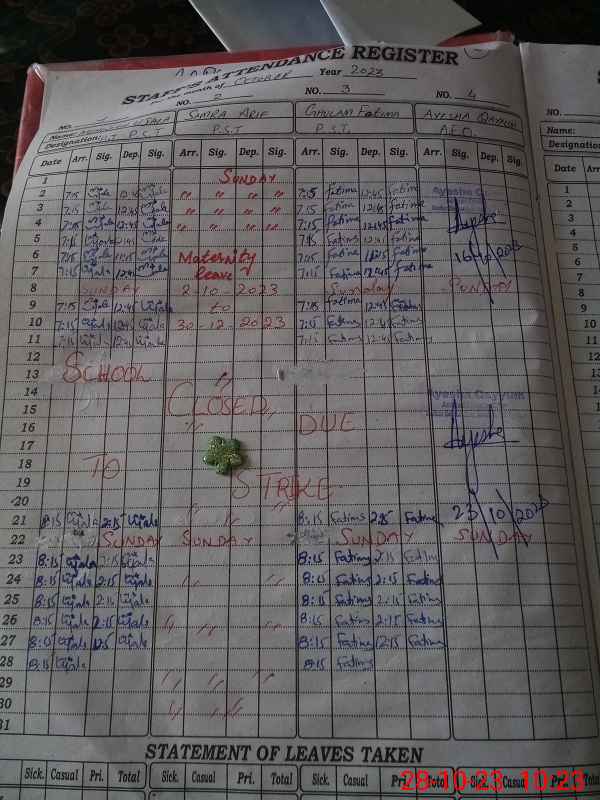 STAFF'S ATTENDANCE REGISTER
for the month of OCTOBER Year 2023
NO. 2 NO. 3 NO. 4
SUMRA ARIF GHULAM FATIMA AYESHA QAYYUM
Name:
Designation: P.S.T P.S.T P.S.T. A.E.O.
Designation
Date Arr. Sig. Dep. Sig. Arr. Sig. Dep. Sig. Arr. Sig. Dep. Sig. Arr. Sig. Dep. Sig. Date Arr.
1 SUNDAY 1
2 7:15 12:45 " " " " 7:15 fatima 12:45 fatima 2
3 7:15 12:45 " " " " 7:15 fatima fatima 3
4 7:15 12:45 " " " " 7:15 fatima 12:45 fatima 4
5 7:15 12:45 7:15 Fatima 12:45 fatima 5
6 7:15 Maternity 7:15 Fatima fatima 6
7 7:15 12:45 leave 7:15 Fatima 12:45 fatima 16/10/2023 7
8 SUNDAY 2-10-2023 Sunday SUNDAY 8
9 7:15 Ujala 12:45 Ujala to 7:15 fatima 12:45 fatima 9
10 7:15 Ujala 12:45 Ujala 30-12-2023 7:15 Fatima 12:45 Fatima 10
11 7:15 Ujala 12:45 Ujala 7:15 Fatima 12:45 Fatima 11
12
13 SCHOOL
14 CLOSED
15 DUE
16
17
18 TO
19 STRIKE
20
21 8:15 Ujala 2:15 Ujala 8:15 Fatima 2:15 Fatima 23/10/2023
22 SUNDAY SUNDAY SUNDAY SUNDAY
23 8:15 Ujala 2:15 8:15 Fatima 2:15 Fatima
24 8:15 Ujala 2:15 Ujala 8:15 Fatima 2:15 Fatima
25 8:15 Ujala 2:15 Ujala 8:15 Fatima 2:15 Fatima
26 8:15 Ujala 2:15 Ujala 8:15 Fatima 2:15 Fatima
27 8:15 Ujala Ujala 8:15 Fatima 12:15 Fatima
28 8:15 Ujala 8:15 Fatima
29
30
31
STATEMENT OF LEAVES TAKEN
Sick. Casual Pri. Total Sick. Casual Pri. Total Sick. Casual Pri. Total Sick.
28-10-23 10:23